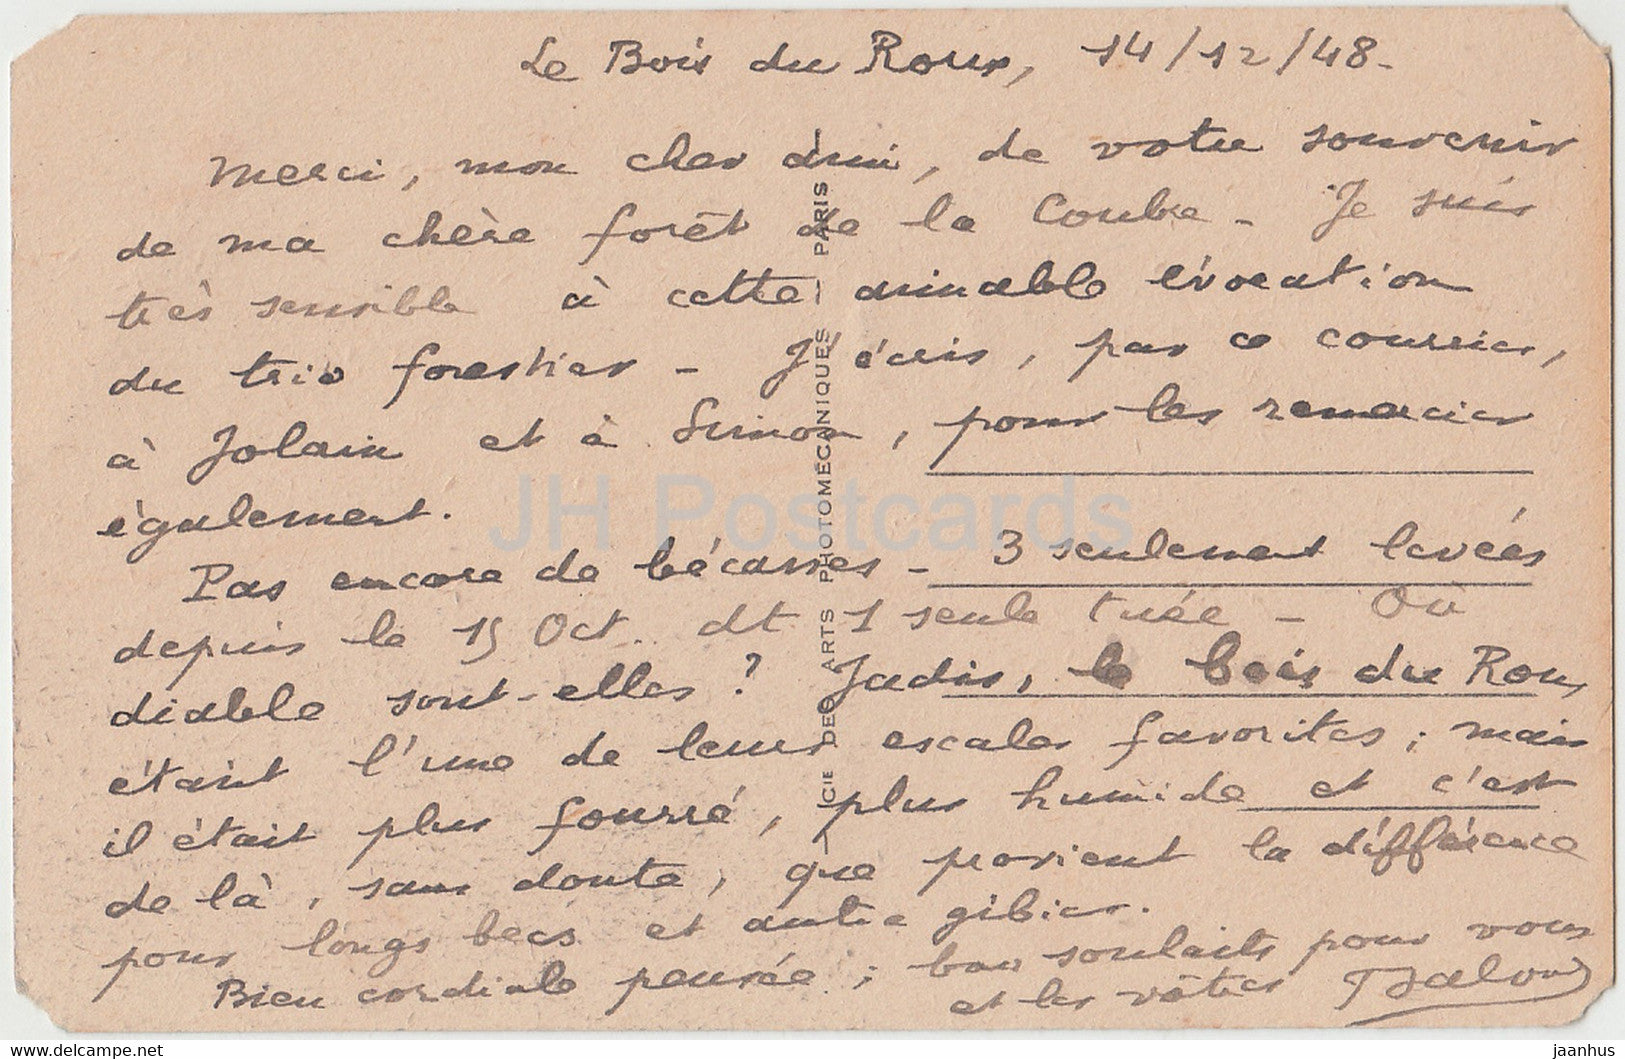 Le Bois du Roux, 14/12/48-
Merci, mon cher ami, de votre souvenir
de ma chère forêt de la Coubre - Je suis
très sensible à cette aimable évocation
du trio forestier - J'écris, par ce courrier,
à Jolain et à Simon, pour les remercier
également.
Pas encore de bécasses - 3 seulement levées
depuis le 15 Oct. dt 1 seule tuée - Où
diable sont-elles ? Jadis, le bois du Roux
était l'une de leurs escales favorites ; mais
il était plus fourré, plus humide et c'est
de là, sans doute, que provient la différence
pour longs becs et autre gibier.
Bien cordiale pensée ; bons souhaits pour vous
et les vôtres
CIE DES ARTS PHOTOMÉCANIQUES - PARIS
JH Postcards
delcampe.net
jaanhus